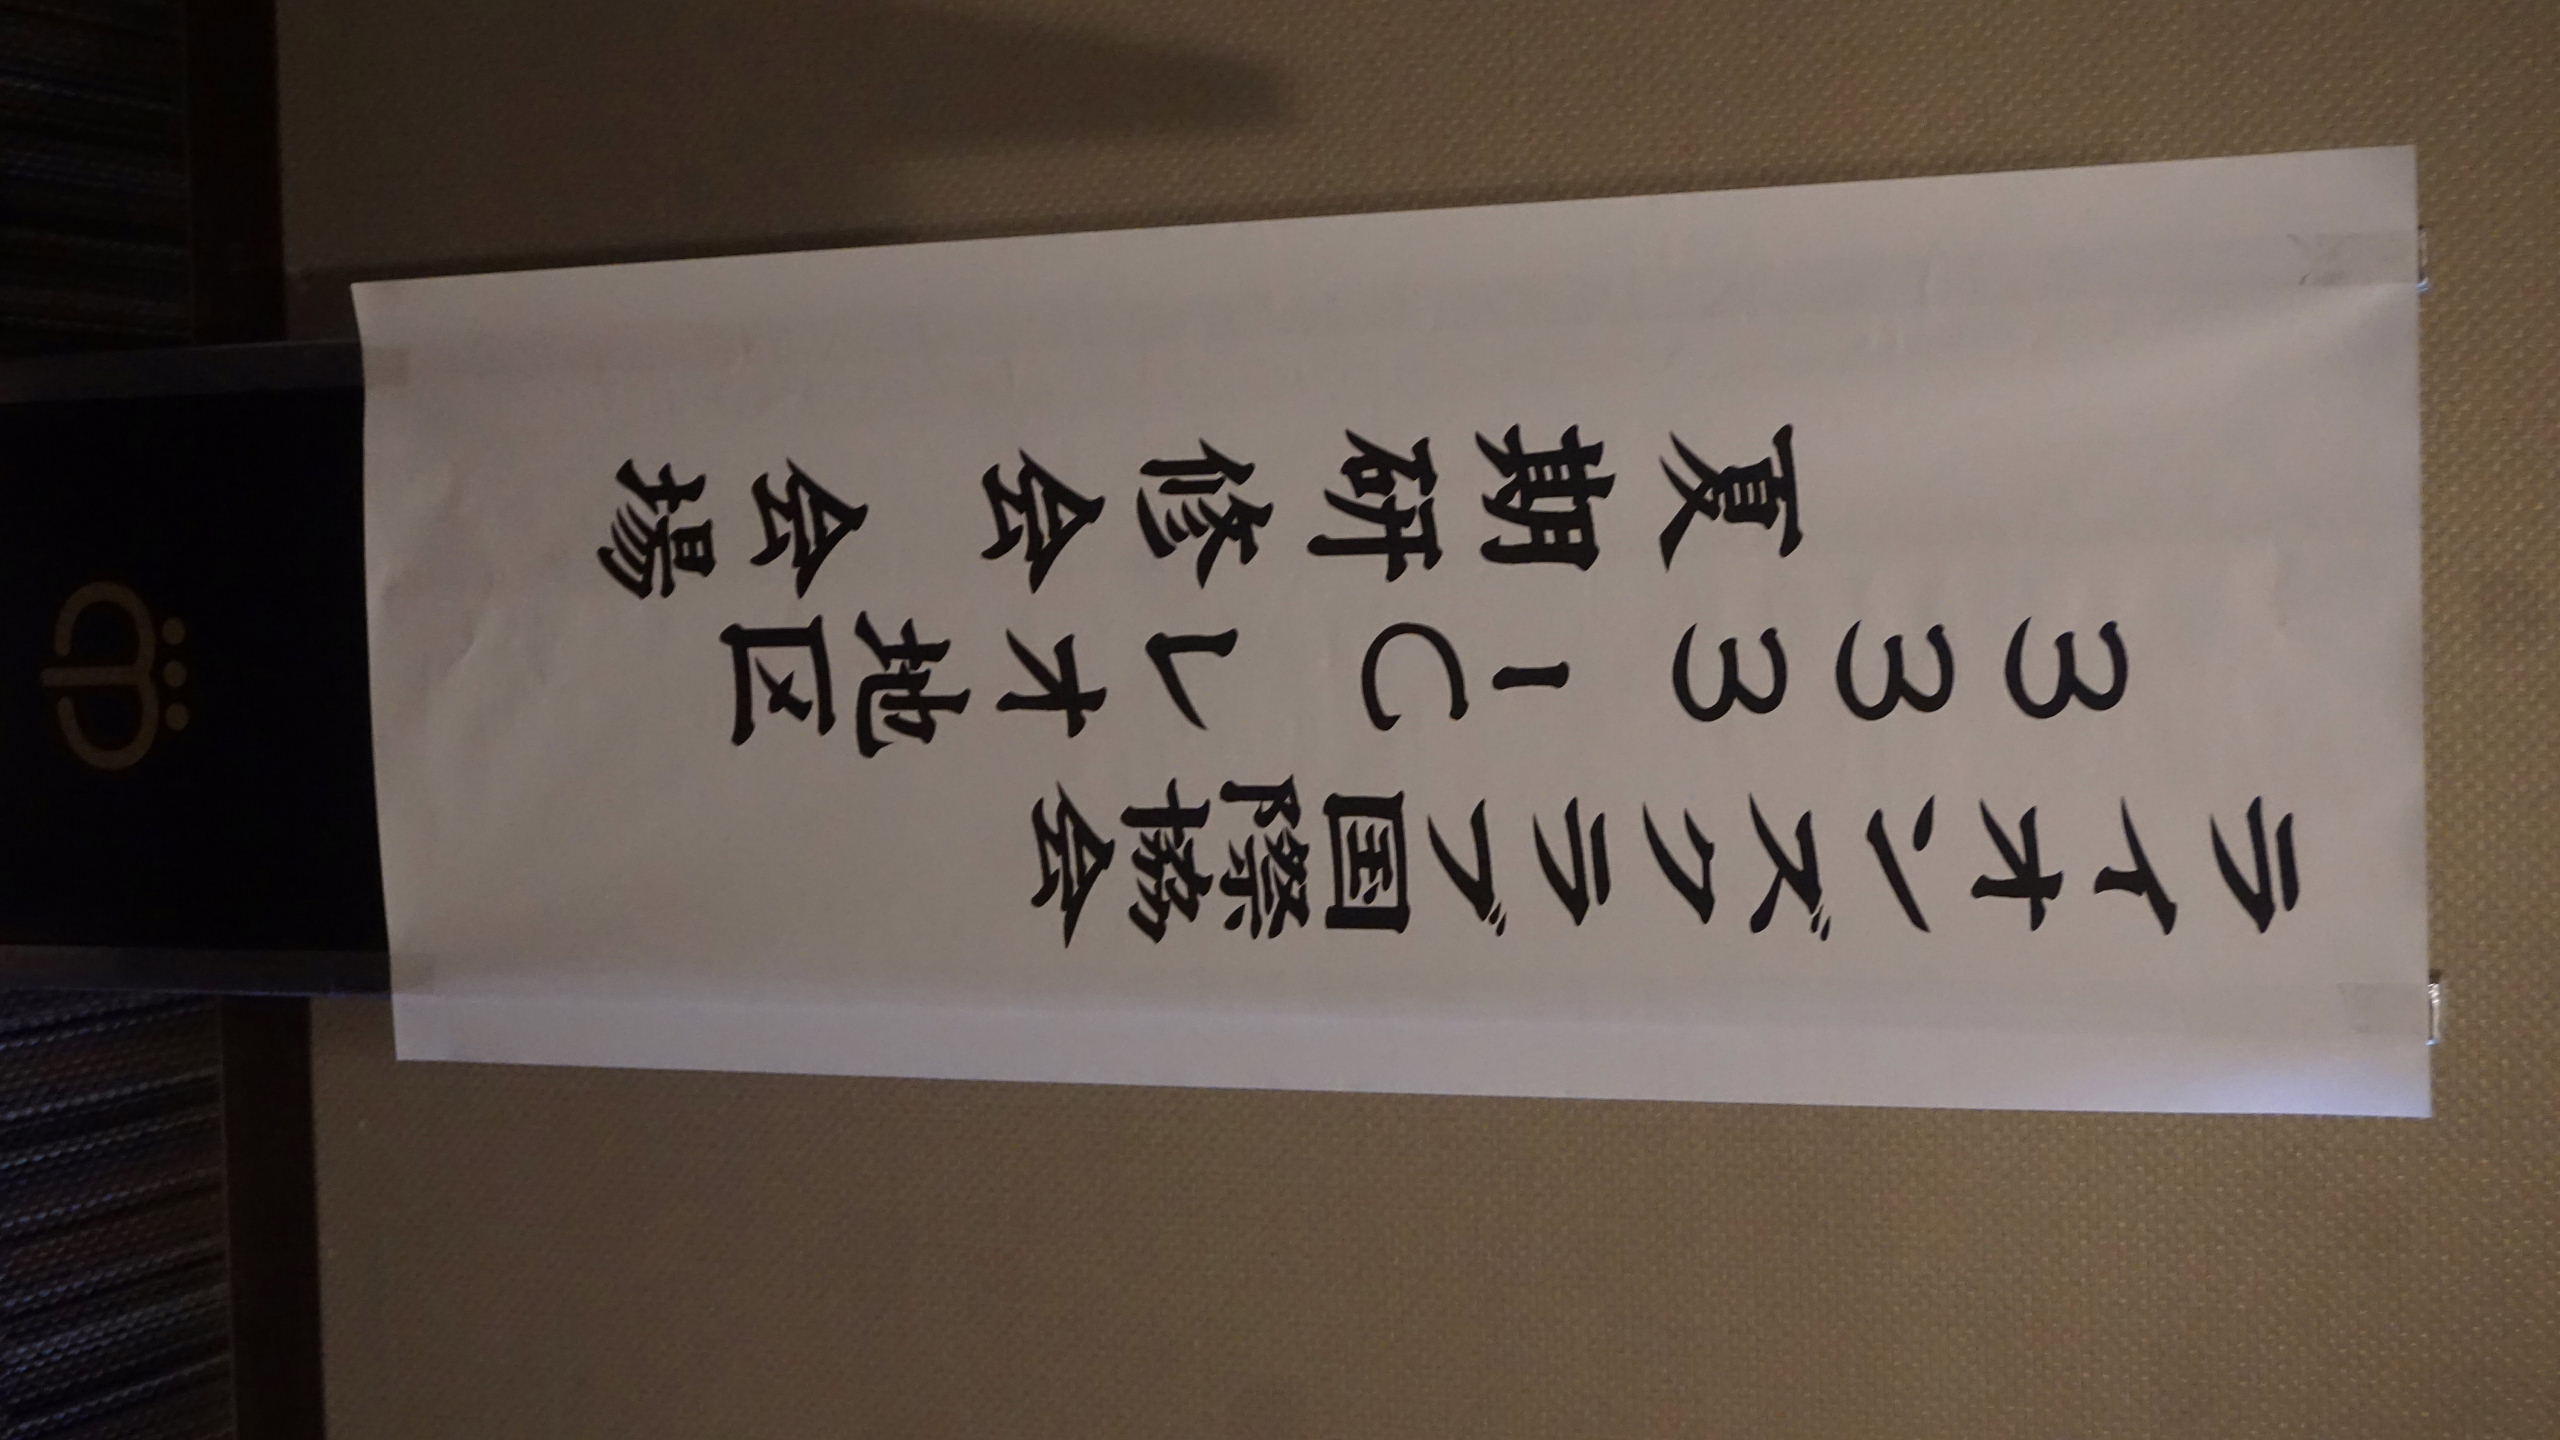 ライオンズクラブ国際協会
333-Cレオ地区
夏期研修会会場